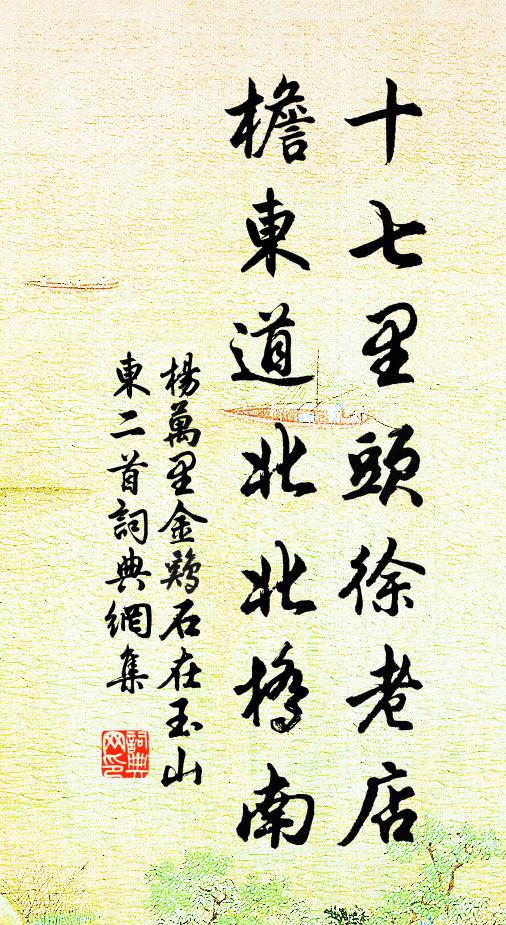 十七里頭徐老店
檐東道北北橋南
楊萬里金鷄石在玉山
東二首詞典網集
詞典
网印